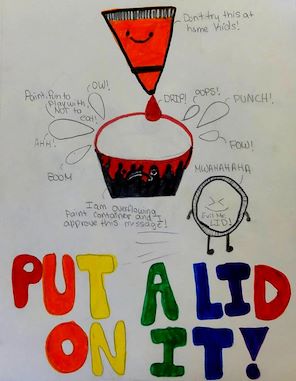 Don't try this at
home kids!
OW!
Paint, fun to
play with,
NOT to
eat!
DRIP!
OOPS!
PUNCH!
AHH!
POW!
BOOM
MWAHAHAHA
I am overflowing
Paint container and I
approve this message!
Evil Mr.
LID!
PUT A LID
ON IT!